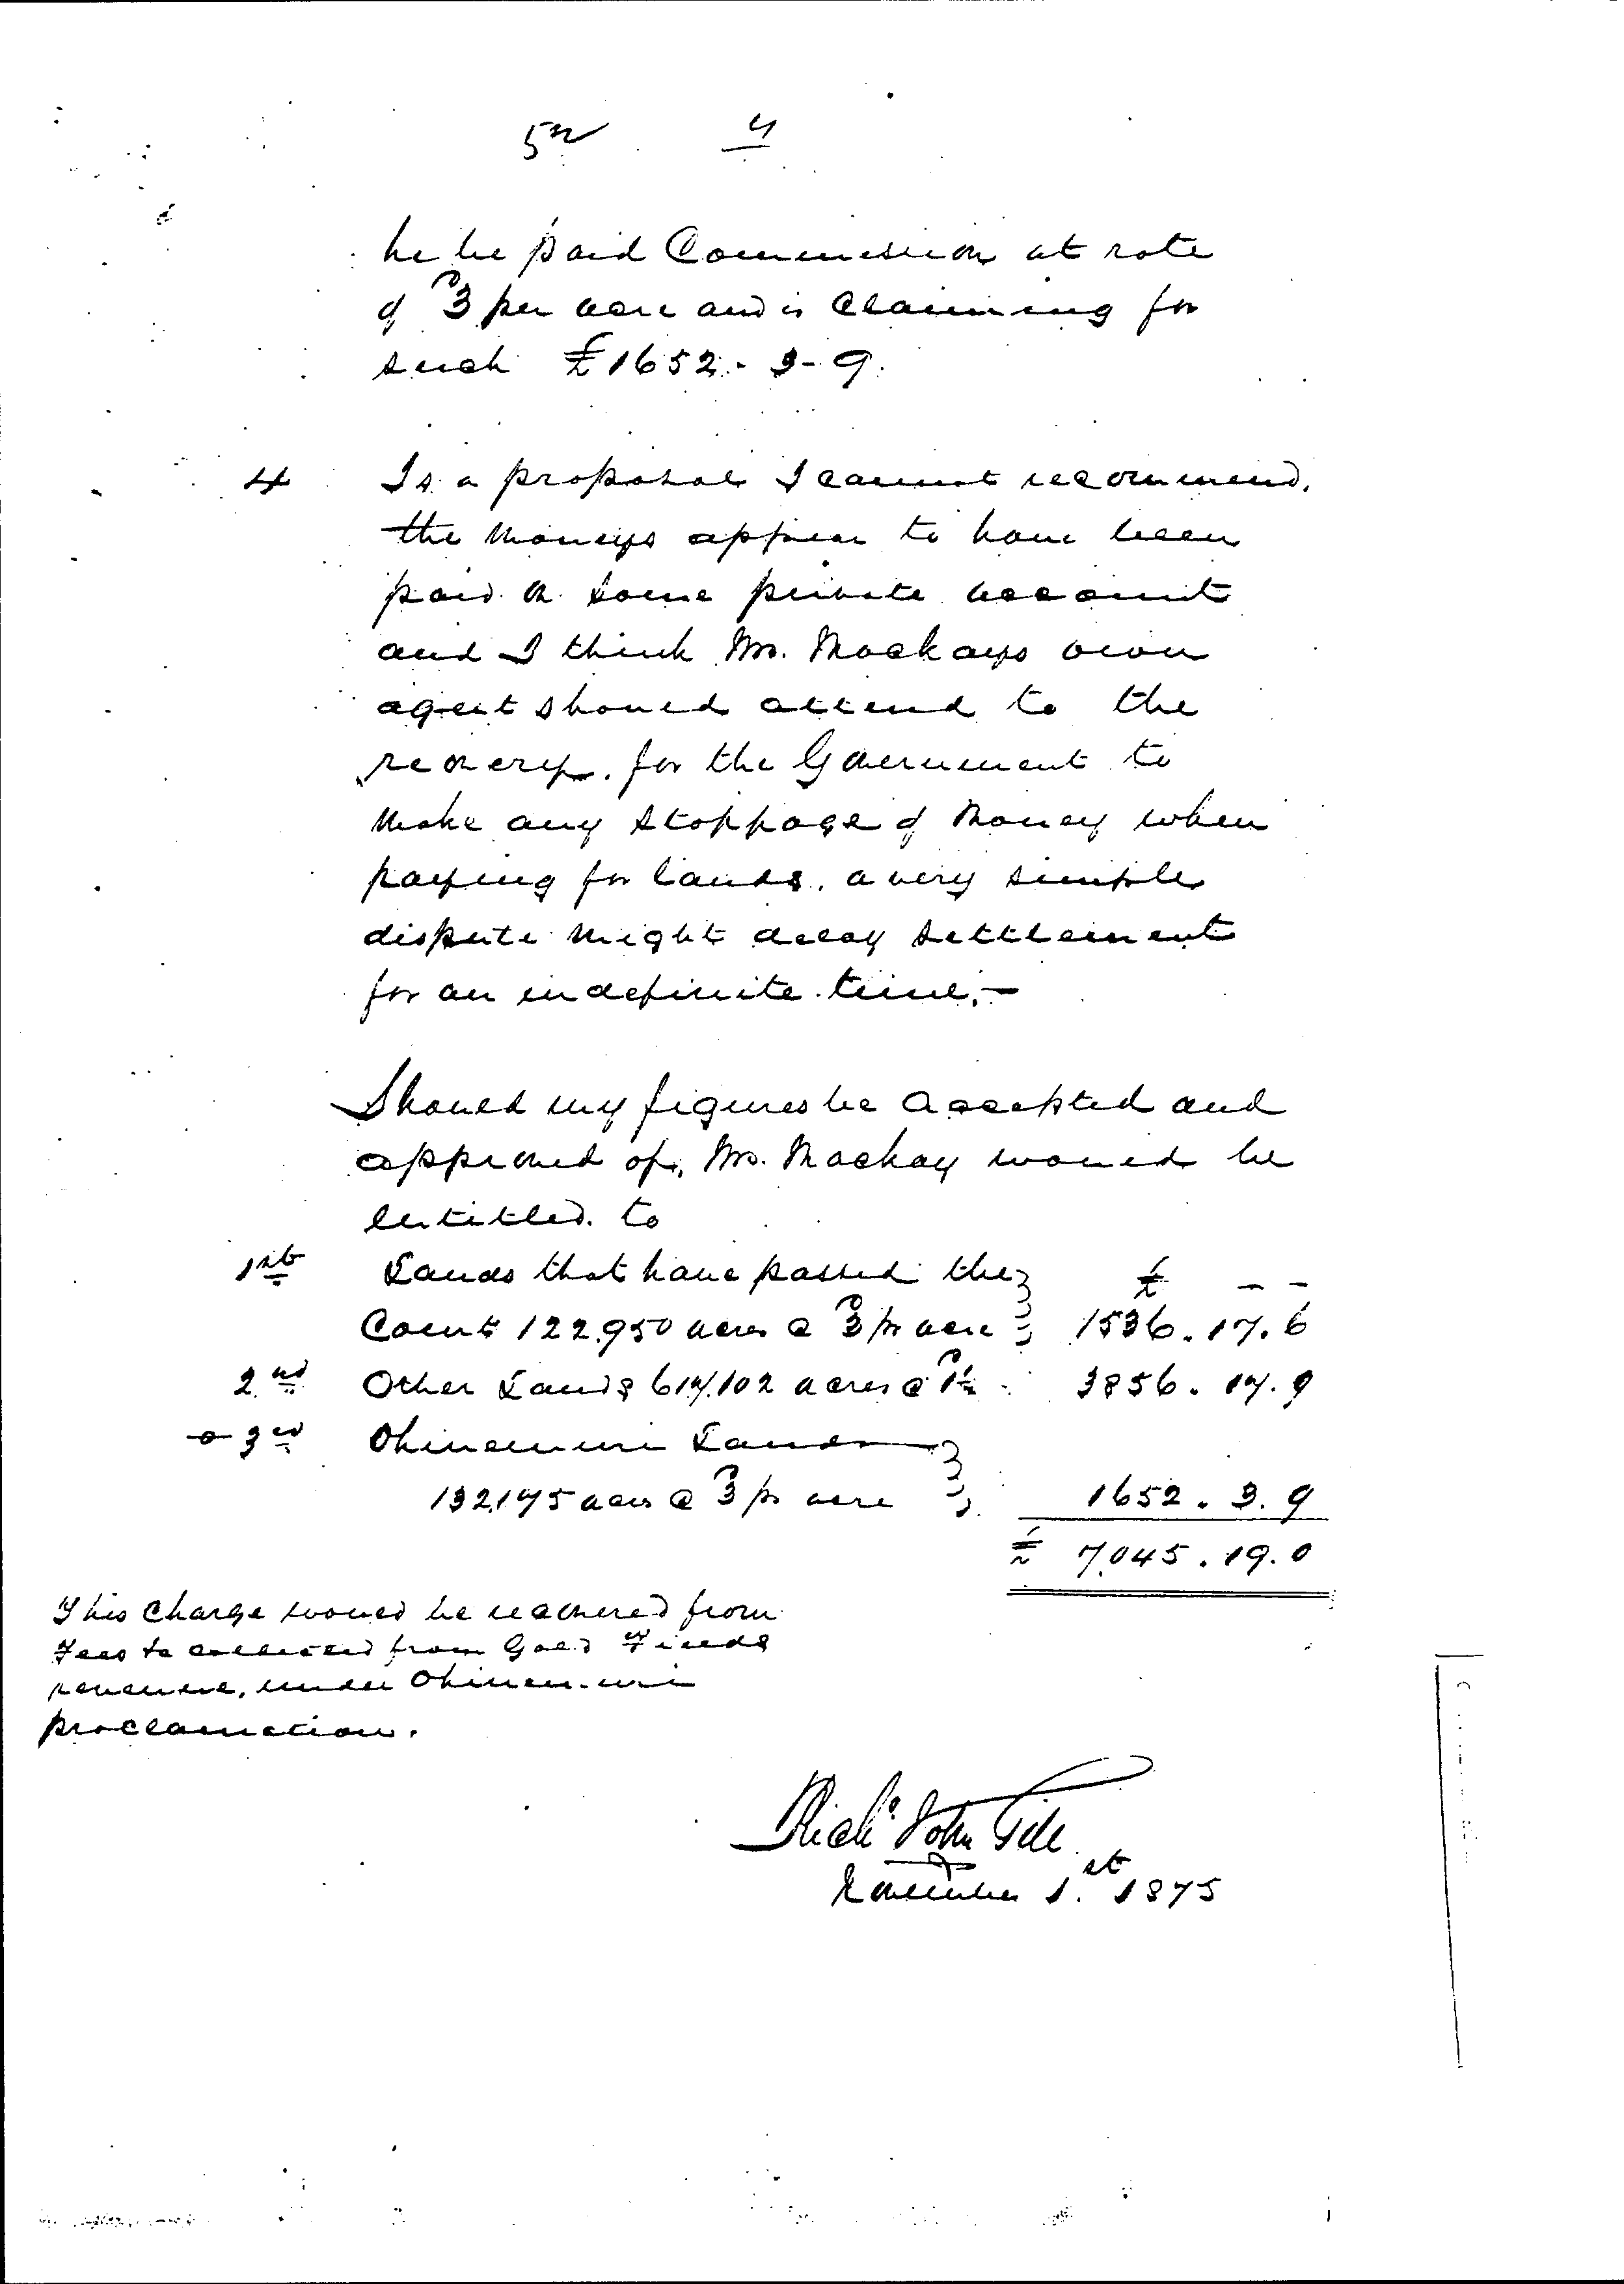 4
he be paid Commission at rate
of 3 per acre and is claiming for
such £1652. 3-9.
4 Is a proposal I cannot recommend,
the moneys appear to have been
paid on some private account
and I think Mr. Mackays own
agent should attend to the
recovery. for the Government to
make any stoppage of money when
paying for lands. a very simple
dispute might delay settlement
for an indefinite time.—
Should my figures be accepted and
approved of, Mr. Mackay would be
entitled to
1st Lands that have passed the £ - -
Court 122.950 acres @ 3 pr acre 1536.17.6
2nd Other Lands 617.102 acres @ 1½ 3856.17.9
3rd Ohinemuri Lands
132175 acres @ 3 pr acre 1652.3.9
£ 7.045.19.0
This Charge would be recovered from
Fees to collected from Gold Fields
revenue, under Ohinemuri
proclamation.
Richd John Gill
November 1st 1875